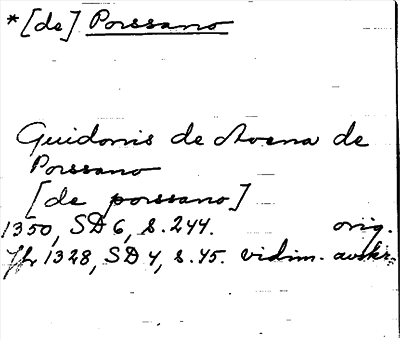 *[de] Porssano
Guidonis de Avena de
Porssano
[de porssano]
1350, SD 6, s. 244. orig.
Jfr 1328, SD 4, s. 45. vidim. avskr.